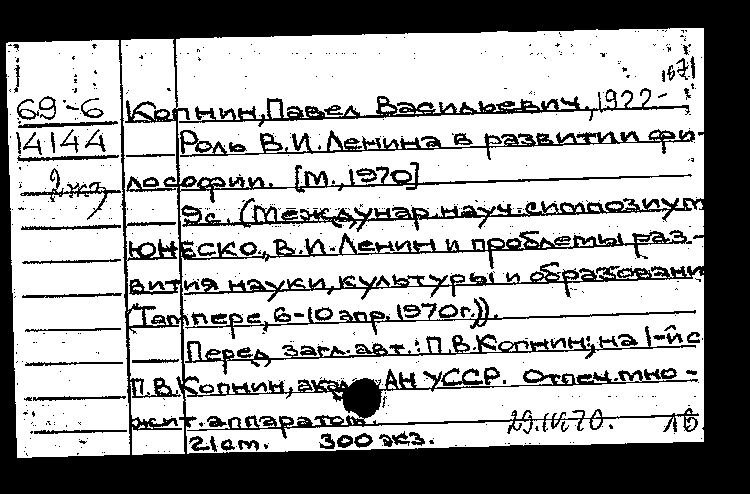 1971
69-6 Копнин, Павел Васильевич, 1922-
14144 Роль В.И.Ленина в развитии фи-
2 экз лософии. [М., 1970]
9с. (Междунар. науч. симпозиум
ЮНЕСКО „В.И.Ленин и проблемы раз-
вития науки, культуры и образовани
(Тампере, 6-10 апр. 1970г.)).
Перед загл. авт.: П.В.Копнин; на 1-й с
П.В.Копнин, акад. АН УССР. Отпеч. мно-
жит. аппаратом.
21 ст. 300 экз. 29.IV.70. 1б